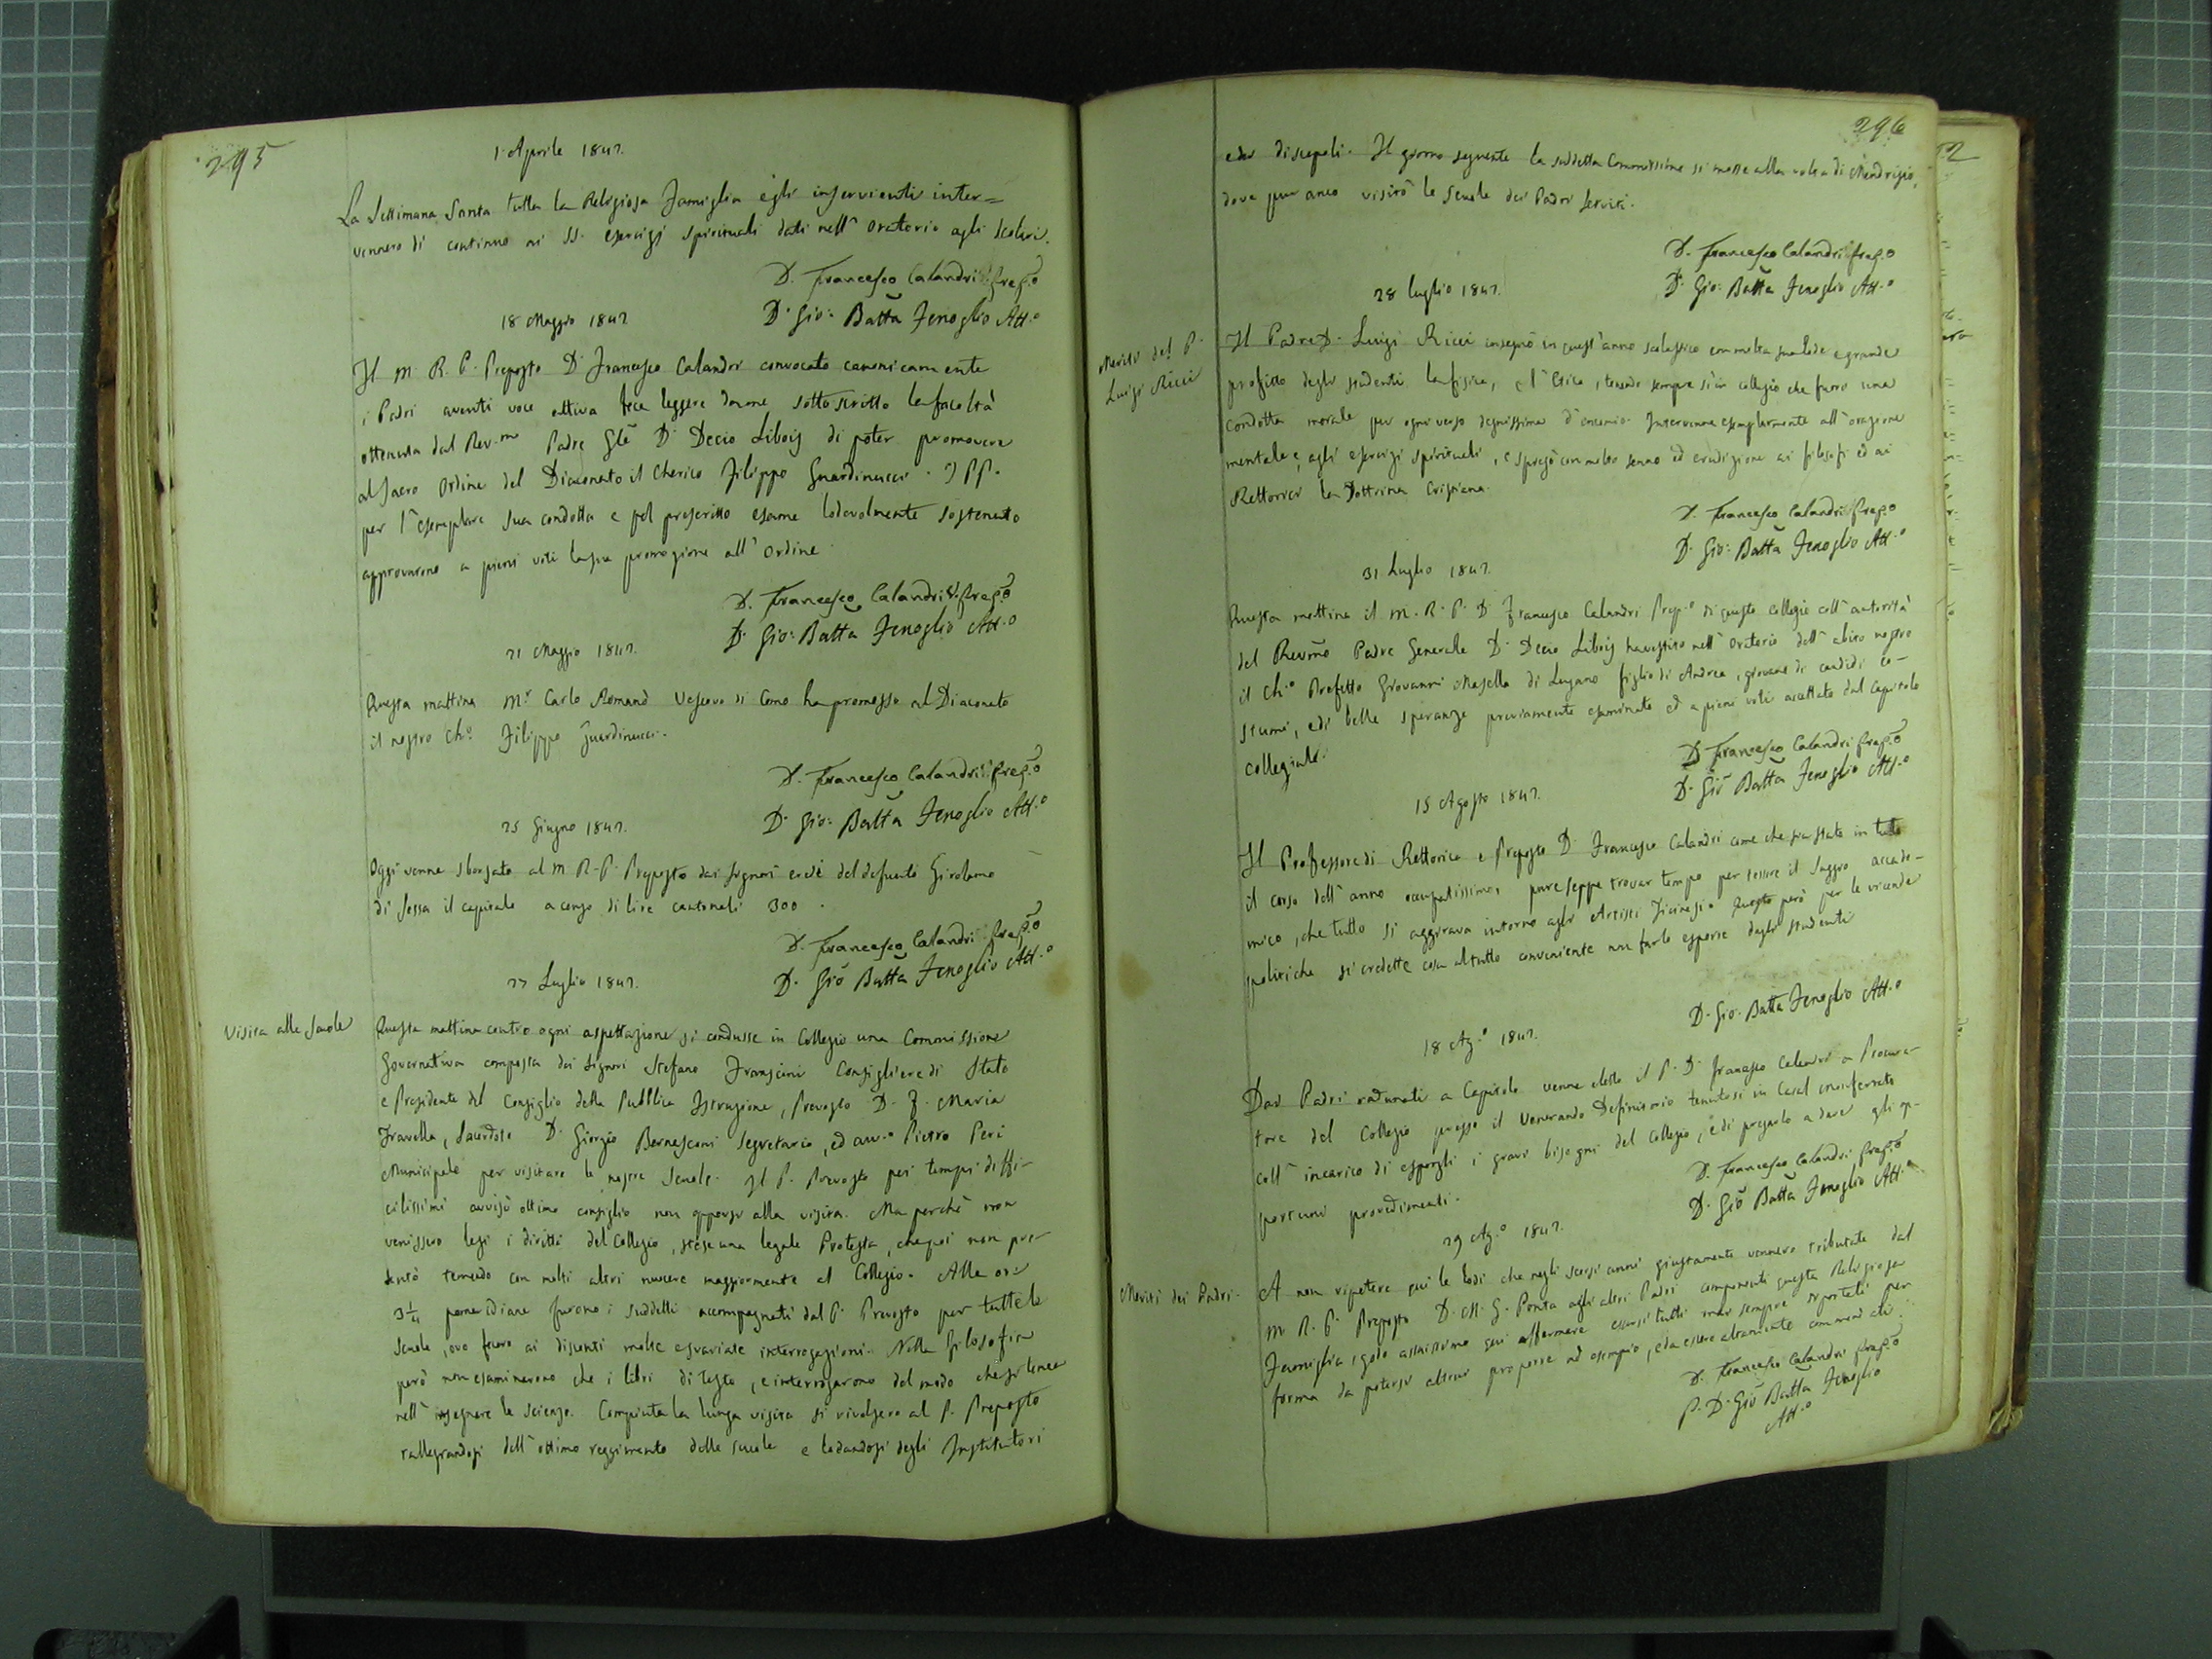 295
1 Aprile 1847.
La Settimana Santa tutta la Religiosa Famiglia e gli inservienti inter=
vennero di continuo ai SS. esercizj spirituali dati nell' Oratorio agli Scolari.
D. Francesco Calandri Prep.o
D. Gio: Batta Fenoglio Att.o
18 Maggio 1847
Il M. R. P. Preposto D. Francesco Calandri convocato canonicamente
i Padri aventi voce attiva fece leggere donme sottoscritto la facoltà
ottenuta dal Rev.mo Padre Gle D. Decio Libois di poter promovere
al Sacro Ordine del Diaconato il Cherico Filippo Guardinucci. I PP.
per l' esemplare sua condotta e pel prescritto esame lodevolmente sostenuto
approvarono a pieni voti la sua promozione all' Ordine.
D. Francesco Calandri Prep.o
D. Gio: Batta Fenoglio Att.o
21 Maggio 1847.
Questa mattina M.r Carlo Romanò Vescovo di Como ha promosso al Diaconato
il nostro Ch.o Filippo Guardinucci.
D. Francesco Calandri Prep.o
D. Gio: Batta Fenoglio Att.o
25 Giugno 1847.
Oggi venne sborsato al M. R. P. Preposto dai Signori eredi del defunto Girolamo
di Sessa il capitale a censo di lire cantonali 300.
D. Francesco Calandri Prep.o
D. Gio Batta Fenoglio Att.o
27 Luglio 1847.
Visita alle Scuole
Questa mattina contro ogni aspettazione si condusse in Collegio una Commissione
Governativa composta dai Signori Stefano Franscini Consigliere di Stato
e Presidente del Consiglio della Pubblica Istruzione, Prevosto D. F. Maria
Travella, Sacerdote D. Giorgio Bernasconi Segretario, ed avv.o Pietro Peri
Municipale per visitare le nostre Scuole. Il P. Prevosto pei tempi diffi-
cilissimi avvisò ottimo consiglio non opporsi alla visita. Ma perchè non
venissero lesi i diritti del Collegio, stese una legale Protesta, che poi non pre-
sentò temendo con molti altri nuocere maggiormente al Collegio. Alle ore
3 1/4 pomeridiane furono i suddetti accompagnati dal P. Prevosto per tutte le
Scuole, ove fecero ai discenti molte e svariate interrogazioni. Nella filosofia
però non esaminarono che i libri di testo, e interrogarono del modo che si tenea
nell' insegnare le scienze. Compiuta la lunga visita si rivolsero al P. Preposto
rallegrandosi dell' ottimo reggimento delle scuole e lodandosi degli Institutori
296
e dei discepoli. Il giorno seguente la suddetta Commissione si mosse alla volta di Mendrisio,
dove pur anco visitò le Scuole dei Padri Serviti.
D. Francesco Calandri Prep.o
D. Gio: Batta Fenoglio Att.o
28 Luglio 1847.
Meriti del P.
Luigi Ricci
Il Padre D. Luigi Ricci insegnò in quest' anno scolastico con molta sua lode e grande
profitto degli studenti la fisica, e l' Etica, tenendo sempre sì in collegio che fuori una
condotta morale per ogni verso degnissima d' encomio. Intervenne esemplarmente all' orazione
mentale, agli esercizj spirituali, e spiegò con molto senno ed erudizione ai filosofi ed ai
Rettorici la Dottrina Cristiana.
D. Francesco Calandri Prep.o
D. Gio: Batta Fenoglio Att.o
31 Luglio 1847.
Questa mattina il M. R. P. D. Francesco Calandri Prep.o di questo Collegio coll' autorità
del Revmo Padre Generale D. Decio Libois ha vestito nell' Oratorio dell' abito nostro
il Ch.o Prefetto Giovanni Masella di Lugano figlio di Andrea, giovane di candidi co-
stumi, e di belle speranze previamente esaminato ed a pieni voti accettato dal Capitolo
Collegiale.
D. Francesco Calandri Prep.o
D. Gio Batta Fenoglio Att.o
15 Agosto 1847.
Il Professore di Rettorica e Preposto D. Francesco Calandri come che sia stato in tutto
il corso dell' anno occupatissimo, pure seppe trovar tempo per tessere il Saggio accade-
mico, che tutto si aggirava intorno agli Artisti Ticinesi. Questo però per le vicende
politiche si credette cosa al tutto conveniente non farlo esporre dagli studenti
D. Gio. Batta Fenoglio Att.o
18 Ag.o 1847.
Dai Padri radunati a Capitolo venne eletto il P. D. Francesco Calandri a Procura-
tore del Collegio presso il Venerando Definitorio tenutosi in Casal monferrato
coll' incarico di esporgli i gravi bisogni del Collegio, e di pregarlo a dare gli op-
portuni provedimenti.
D. Francesco Calandri Prep.o
D. Gio Batta Fenoglio Att.o
29 Ag.o 1847.
Meriti dei Padri.
A non ripetere qui le lodi che negli scorsi anni giustamente vennero tributate dal
M. R. P. Preposto D. M. G. Ponta agli altri Padri componenti questa Religiosa
Famiglia, godo assaissimo qui affermare essersi tutti mai sempre portati per
forma da potersi altrui proporre ad esempio, e da essere altamente commendati.
D. Francesco Calandri Prep.o
P. D. Gio Batta Fenoglio
Att.o